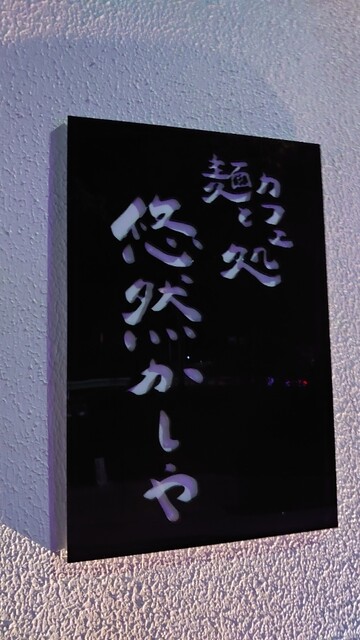 麺とカフェ処
悠然かしや